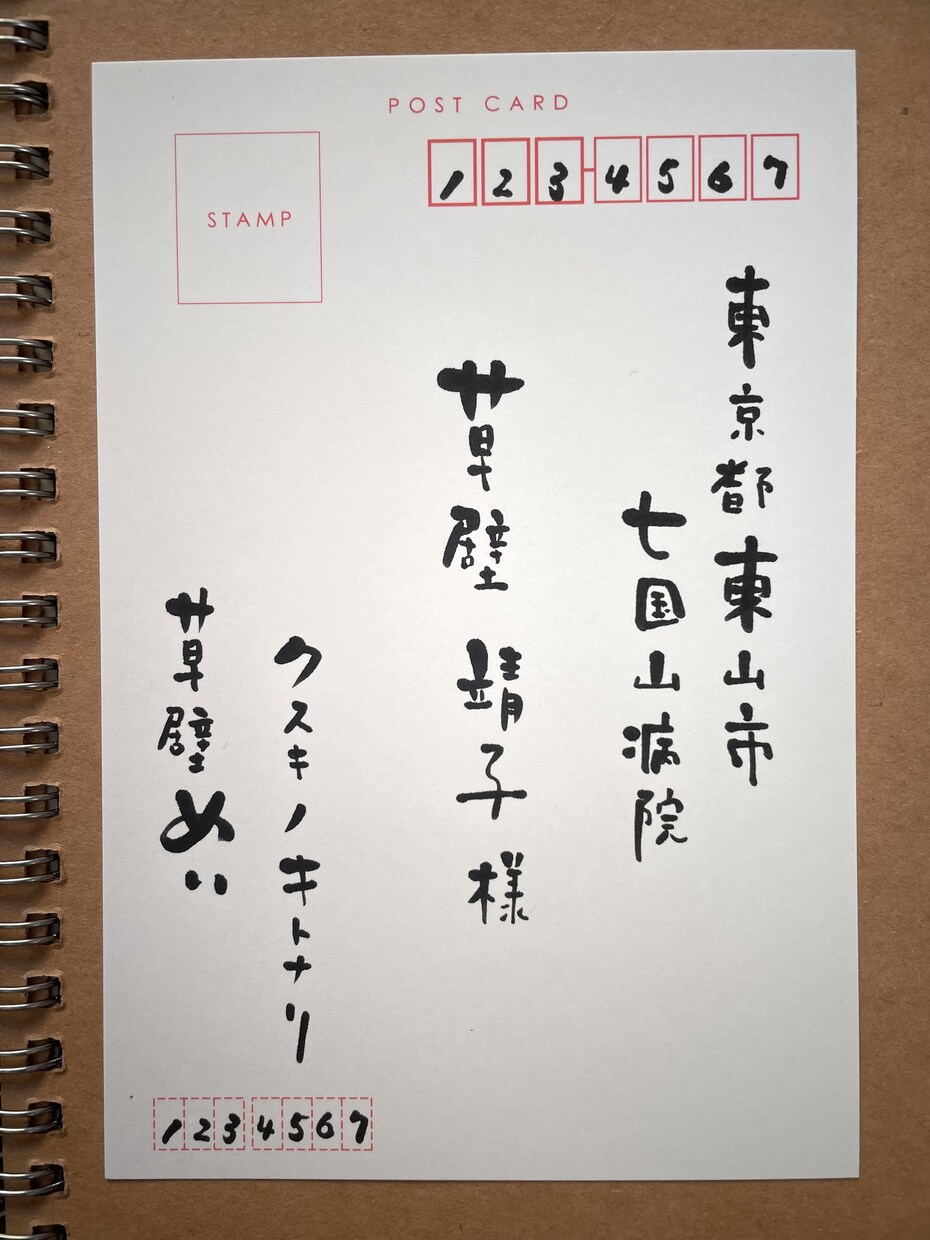 POST CARD
STAMP
123-4567
東京都東山市
七国山病院
草壁 靖子 様
クスキノキトナリ
草壁めい
1234567